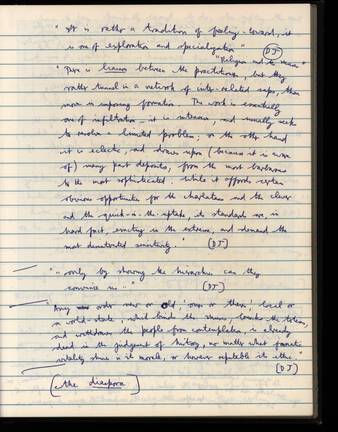 " It is rather a tradition of feeling-toward, it
is one of exploration and specialization " (DJ)
" Religion and the
" There is liaison between the practitioners, but they
rather tunnel in a network of inter-related saps, than
move in imposing formation. The work is essentially
one of infiltration - it is intensive, and usually seeks
to resolve a limited problem; on the other hand
it is eclectic, and draws upon (because it is aware
of) many past deposits, from the most barbarous
to the most sophisticated. While it affords certain
obvious opportunities for the charlatan and the clever
and the quick-in-the-uptake, its standards are, in
hard fact, exacting in the extreme, and demand the
most disinterested sensitivity. " (DJ)
" ... only by showing the hierarchies can they
convince us .. " (DJ)
" Any new order new or old, 'ours' or theirs, local or
a world-state, which binds the
and withdraws the people from contemplation, is already
dead in the judgment of history, no matter what fanatic
vitality shine in its morale, or however reputable its ethic. "
(DJ)
(the diaspora)